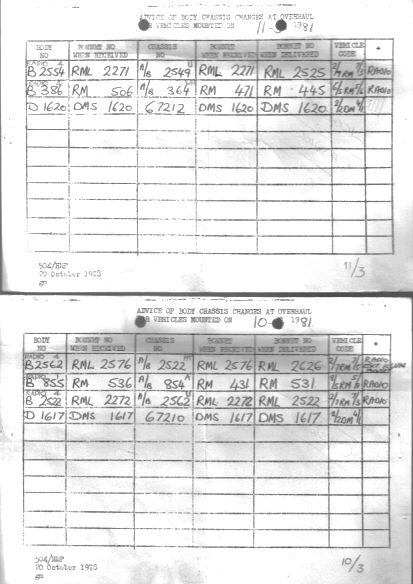 ADVICE OF BODY CHASSIS CHANGES AT OVERHAUL
VEHICLES MOUNTED ON 11-3 1981
BODY NO BONNET NO WHEN RECEIVED CHASSIS NO BONNET NO WHEN RECEIVED BONNET NO WHEN DELIVERED VEHICLE CODE *
RADIO
B 2554 RML 2271 A/B 2549 RML 2271 RML 2525 RADIO
B 386 RM 506 A/B 364 RM 471 RM 445 RADIO
D 1620 DMS 1620 67212 DMS 1620 DMS 1620
504/HMP
20 October 1978
gn
11/3
ADVICE OF BODY CHASSIS CHANGES AT OVERHAUL
VEHICLES MOUNTED ON 10-3 1981
BODY NO BONNET NO WHEN RECEIVED CHASSIS NO BONNET WHEN RECEIVED BONNET NO WHEN DELIVERED VEHICLE CODE *
RADIO 4
B2562 RML 2576 A/B 2522 RML 2576 RML 2626 RADIO
B 855 RM 536 A/B 854 RM 431 RM 531 RADIO
RADIO 4
B 2522 RML 2272 A/B 2562 RML 2272 RML 2522 RADIO
D 1617 DMS 1617 67210 DMS 1617 DMS 1617
504/HMP
20 October 1978
gn
10/3